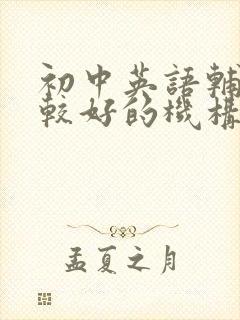 初中英語輔
較好的機構
孟夏之月